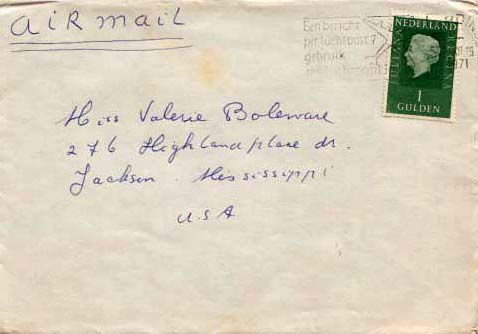 AiR mail
Een bericht
per luchtpost?
gebruik
1971
NEDERLAND
JULIANA
REGINA
1
GULDEN
Miss Valerie Boleware
276 Highland place dr.
Jackson. Mississippi
U.S.A